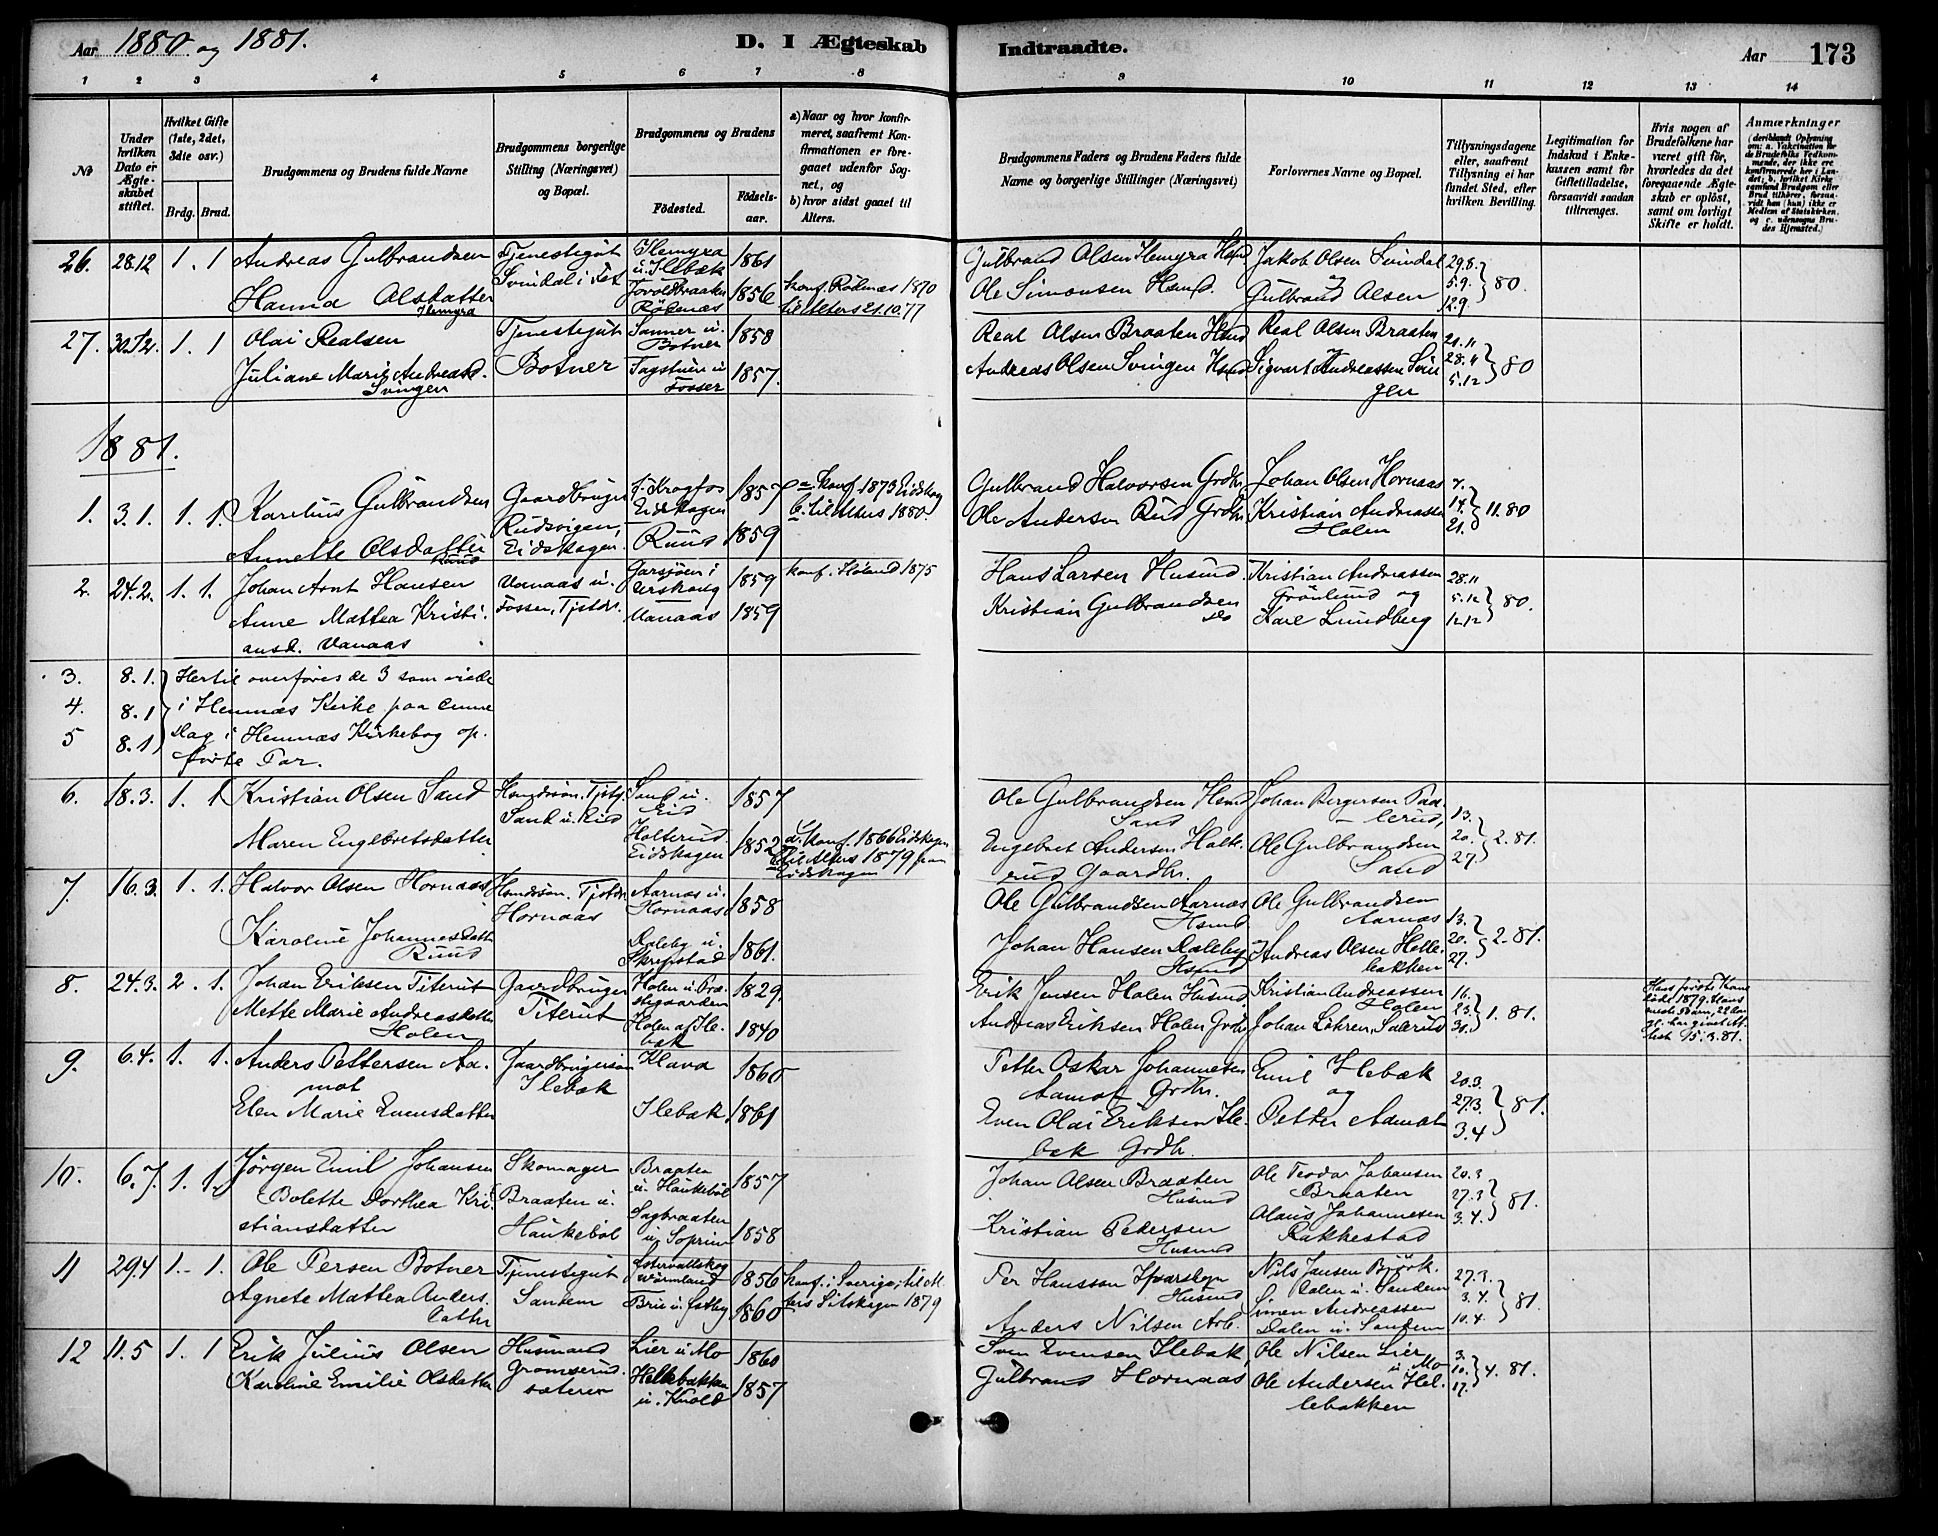 Aar 1880 og 1881.
D. I Ægteskab Indtraadte.
Aar 173
1 2 3 4 5 6 7 8 9 10 11 12 13 14
No
Under hvilken Dato er Ægteskabet stiftet.
Hvilket Gifte (1ste, 2det, 3die osv.)
Brdg. Brud.
Brudgommens og Brudens fulde Navne
Brudgommens borgerlige Stilling (Næringsvei) og Bopæl.
Brudgommens og Brudens
Fødested.
Fødselsaar.
a) Naar og hvor konfirmeret, saafremt Konfirmationen er foregaaet udenfor Sognet, og
b) hvor sidst gaaet til Alters.
Brudgommens Faders og Brudens Faders fulde Navne og borgerlige Stillinger (Næringsvei)
Forlovernes Navne og Bopæl.
Tillysningsdagene eller, saafremt Tillysning ei har fundet Sted, efter hvilken Bevilling.
Legitimation for Indskud i Enkekassen samt for Giftetilladelse, forsaavidt saadan tiltrænges.
Hvis nogen af Brudefolkene har været gift før, hvorledes da det foregaaende Ægteskab er opløst, samt om lovligt Skifte er holdt.
Anmærkninger
26. 28.12 1. 1 Andreas Gulbrandsen Tjenestegut Svindal i Fet Ilemyra u. Ilebæk 1861
Gulbrand Olsen Ilemyra Hsmd Jakob Olsen Svindal 29.8. 5.9. 12.9. 80.
Hanna Olsdatter Ilemyra Rødenæs 1856 konf. Rødenæs 1870 til Alters 21.10.77
Ole Simonsen Hsmd. Gulbrand Olsen
27. 30.12. 1. 1 Olai Realsen Tjenestegut Botner Sanner u. Botner 1858
Real Olsen Braaten Hsmd Real Olsen Braaten 21.11 28.11 5.12 80
Juliane Marie Andreasd. Svingen Fosser 1857.
Andreas Olsen Svingen Hsmd Sigvart Andreassen Svingen
1881.
1. 3.1. 1. 1. Karelius Gulbrandsen Gaardbruger Rudsvigen, Eidskogen Eidskogen 1857 a konf. 1873 Eidskog b. til Alters 1880.
Gulbrand Halvorsen Grdbr. Johan Olsen Hornaas 7. 14. 21. 11.80
Annette Olsdatter Ruud Ruud 1859
Ole Andersen Rud Grdbr. Kristian Andreassen Holen
2. 24.2. 1. 1. Johan Arnt Hansen Vanaas u. Fosser, Tjstdr. Garsjøen i Urskoug 1859 konf. Høland 1875
Hans Larsen Husmd. Kristian Andreassen Grönlund og 28.11 5.12 12.12 80.
Anne Mattea Kristiansd. Vanaas Vanaas 1859
Kristian Gulbrandsen do Karl Lundberg
3. 8.1. Hertil overføres de 3 som viede
4. 8.1 i Hemnæs Kirke paa denne
5 8.1 Dag i Hemnæs Kirkebog opførte Par.
6. 18.3. 1. 1 Kristian Olsen Sand Hsmdsøn. Sand u. Eid Sand u. Eid 1857
Ole Gulbrandsen Hsmd Sand Johan Bergersen 13. 20. 27. 2.81.
Maren Englebretsdatter Holterud Eidskogen 1852 a. konf. 1866 Eidskogen b til Alters 1879 paa Eidskogen
Engebret Andersen Holterud Gaardbr. Ole Gulbrandsen Sand
7. 16.3. 1. 1. Halvor Olsen Hornaas Hsmdsøn. Tjstdr. Hornaas Aarnæs u. Hornaas 1858
Ole Gulbrandsen Aarnæs Hsmd Ole Gulbrandsen Aarnæs 13. 20. 27. 2.81.
Karoline Johannesdatter Ruud Daleby u. Skrepstad 1861.
Johan Hansen Daleby Hsmd Andreas Olsen Hellebakken
8. 24.3. 2. 1. Johan Eriksen Titerut Gaardbruger Titerut Holen u. Præstegaarden 1829.
Erik Jensen Holen Husmd. Kristian Andreassen Holen 16. 23. 30. 1.81.
Mette Marie Andreasdatter Holen Holen af Ilebæk 1840
Andreas Eriksen Holen Grdbr. Johan
Hans første Kone døde 1879.
9. 6.4. 1. 1. Anders Pettersen Aamot Gaardbrugersøn Ilebæk Klava 1860
Petter Oskar Johannesen Aamot Grdbr. Emil Ilebæk og 20.3. 27.3. 3.4 81.
Elen Marie Evensdatter Ilebæk 1861
Even Olai Eriksen Ilebæk Grdbr. Petter Aamot
10. 6.7. 1. 1. Jørgen Emil Johansen Skomager Braaten u. Haukebøl Braaten u. Haukebøl 1857
Johan Olsen Braaten Husmd Ole Teodor Johansen Braaten 20.3 27.3 3.4. 81.
Bolette Dorthea Kristiansdatter Sagbraaten u. Soprim 1858
Kristian Pedersen Husmd Olaus Johannesen Rakkestad
11 29.4 1. 1. Ole Persen Botner Tjenestegut Sandem Östervallskog Wärmland 1856 konf. i Sverige; til Alters 1879
Per Hansson Husmd Nils Jansen Dalen u. Sandem 27.3. 3.4. 10.4. 81.
Agnete Mattea Andersdatter 1860
Anders Nilsen Arb. Simen Andreassen Dalen u. Sandem
12 11.5 1. 1 Erik Julius Olsen Husmand Lier u. Mo 1860
Sven Evensen Ilebæk, Ole Nilsen Lier u. Mo 3. 10. 17. 4.81.
Karoline Emilie Olsdatter Hellebakken u. Kvold 1857
Gulbrand Hornaas Ole Andersen Hellebakken